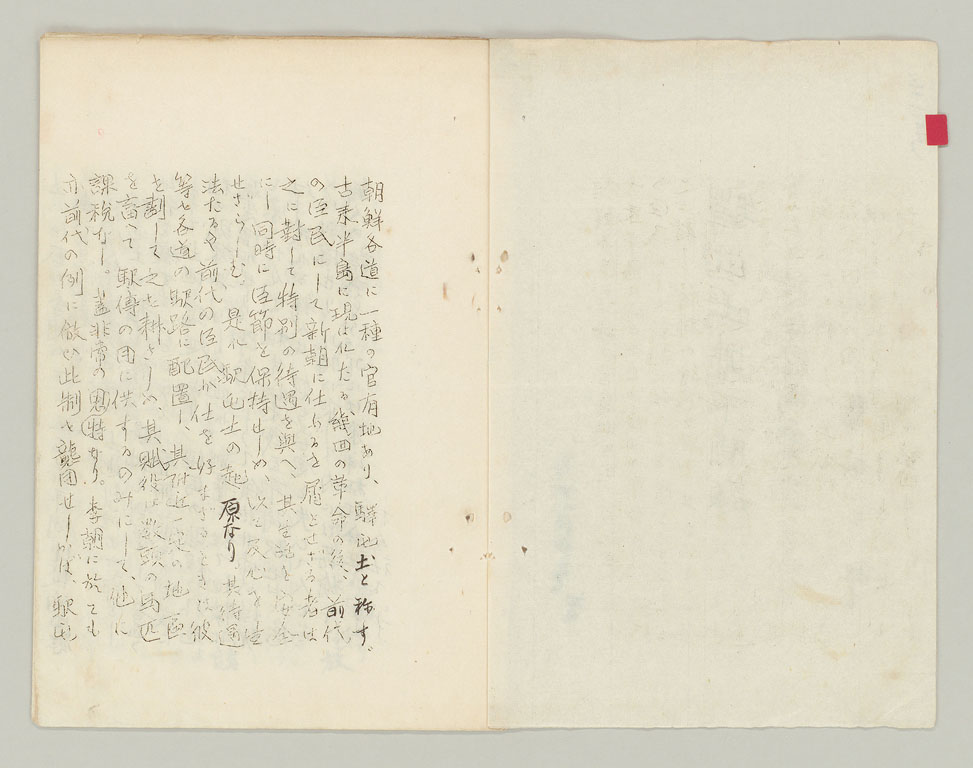 朝鮮各道に一種の官有地あり、驛屯土と称す。
古来半島に現はれたる幾回の革命の後、前代
の臣民にして新朝に仕ふるを屑とせざる者は
之に對して特別の待遇を與へ、其生活を安全
にし同時に臣節を保持せしめ、以て反心を
せざらしむ。是れ駅屯土の起原なり。其待遇
法たるや前代の臣民が仕を好まざるときは彼
等を各道の駅路に配置し、其附近一定の地區
を劃して之を耕さしめ、其賦役は数頭の馬匹
を畜へて駅傳の用に供するのみにして、他に
課税なし。蓋非常の恩特なり。李朝に於ても
亦前代の例に倣ひ此制を襲用せしかば、駅屯